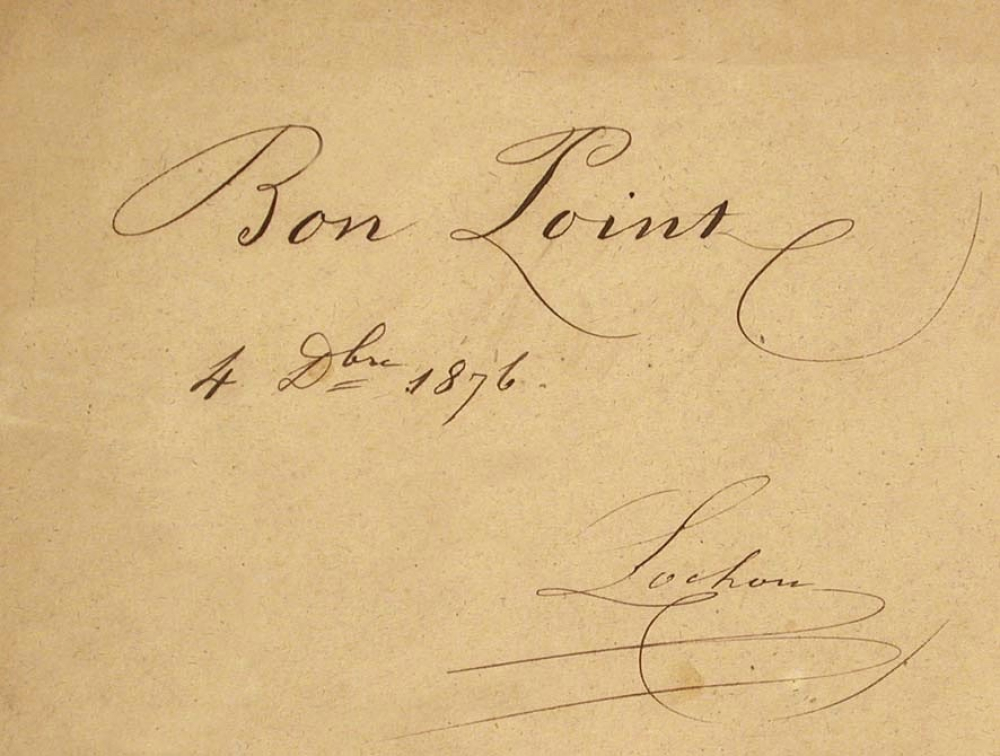 Bon Point
4 Dbre 1876.
Lochon